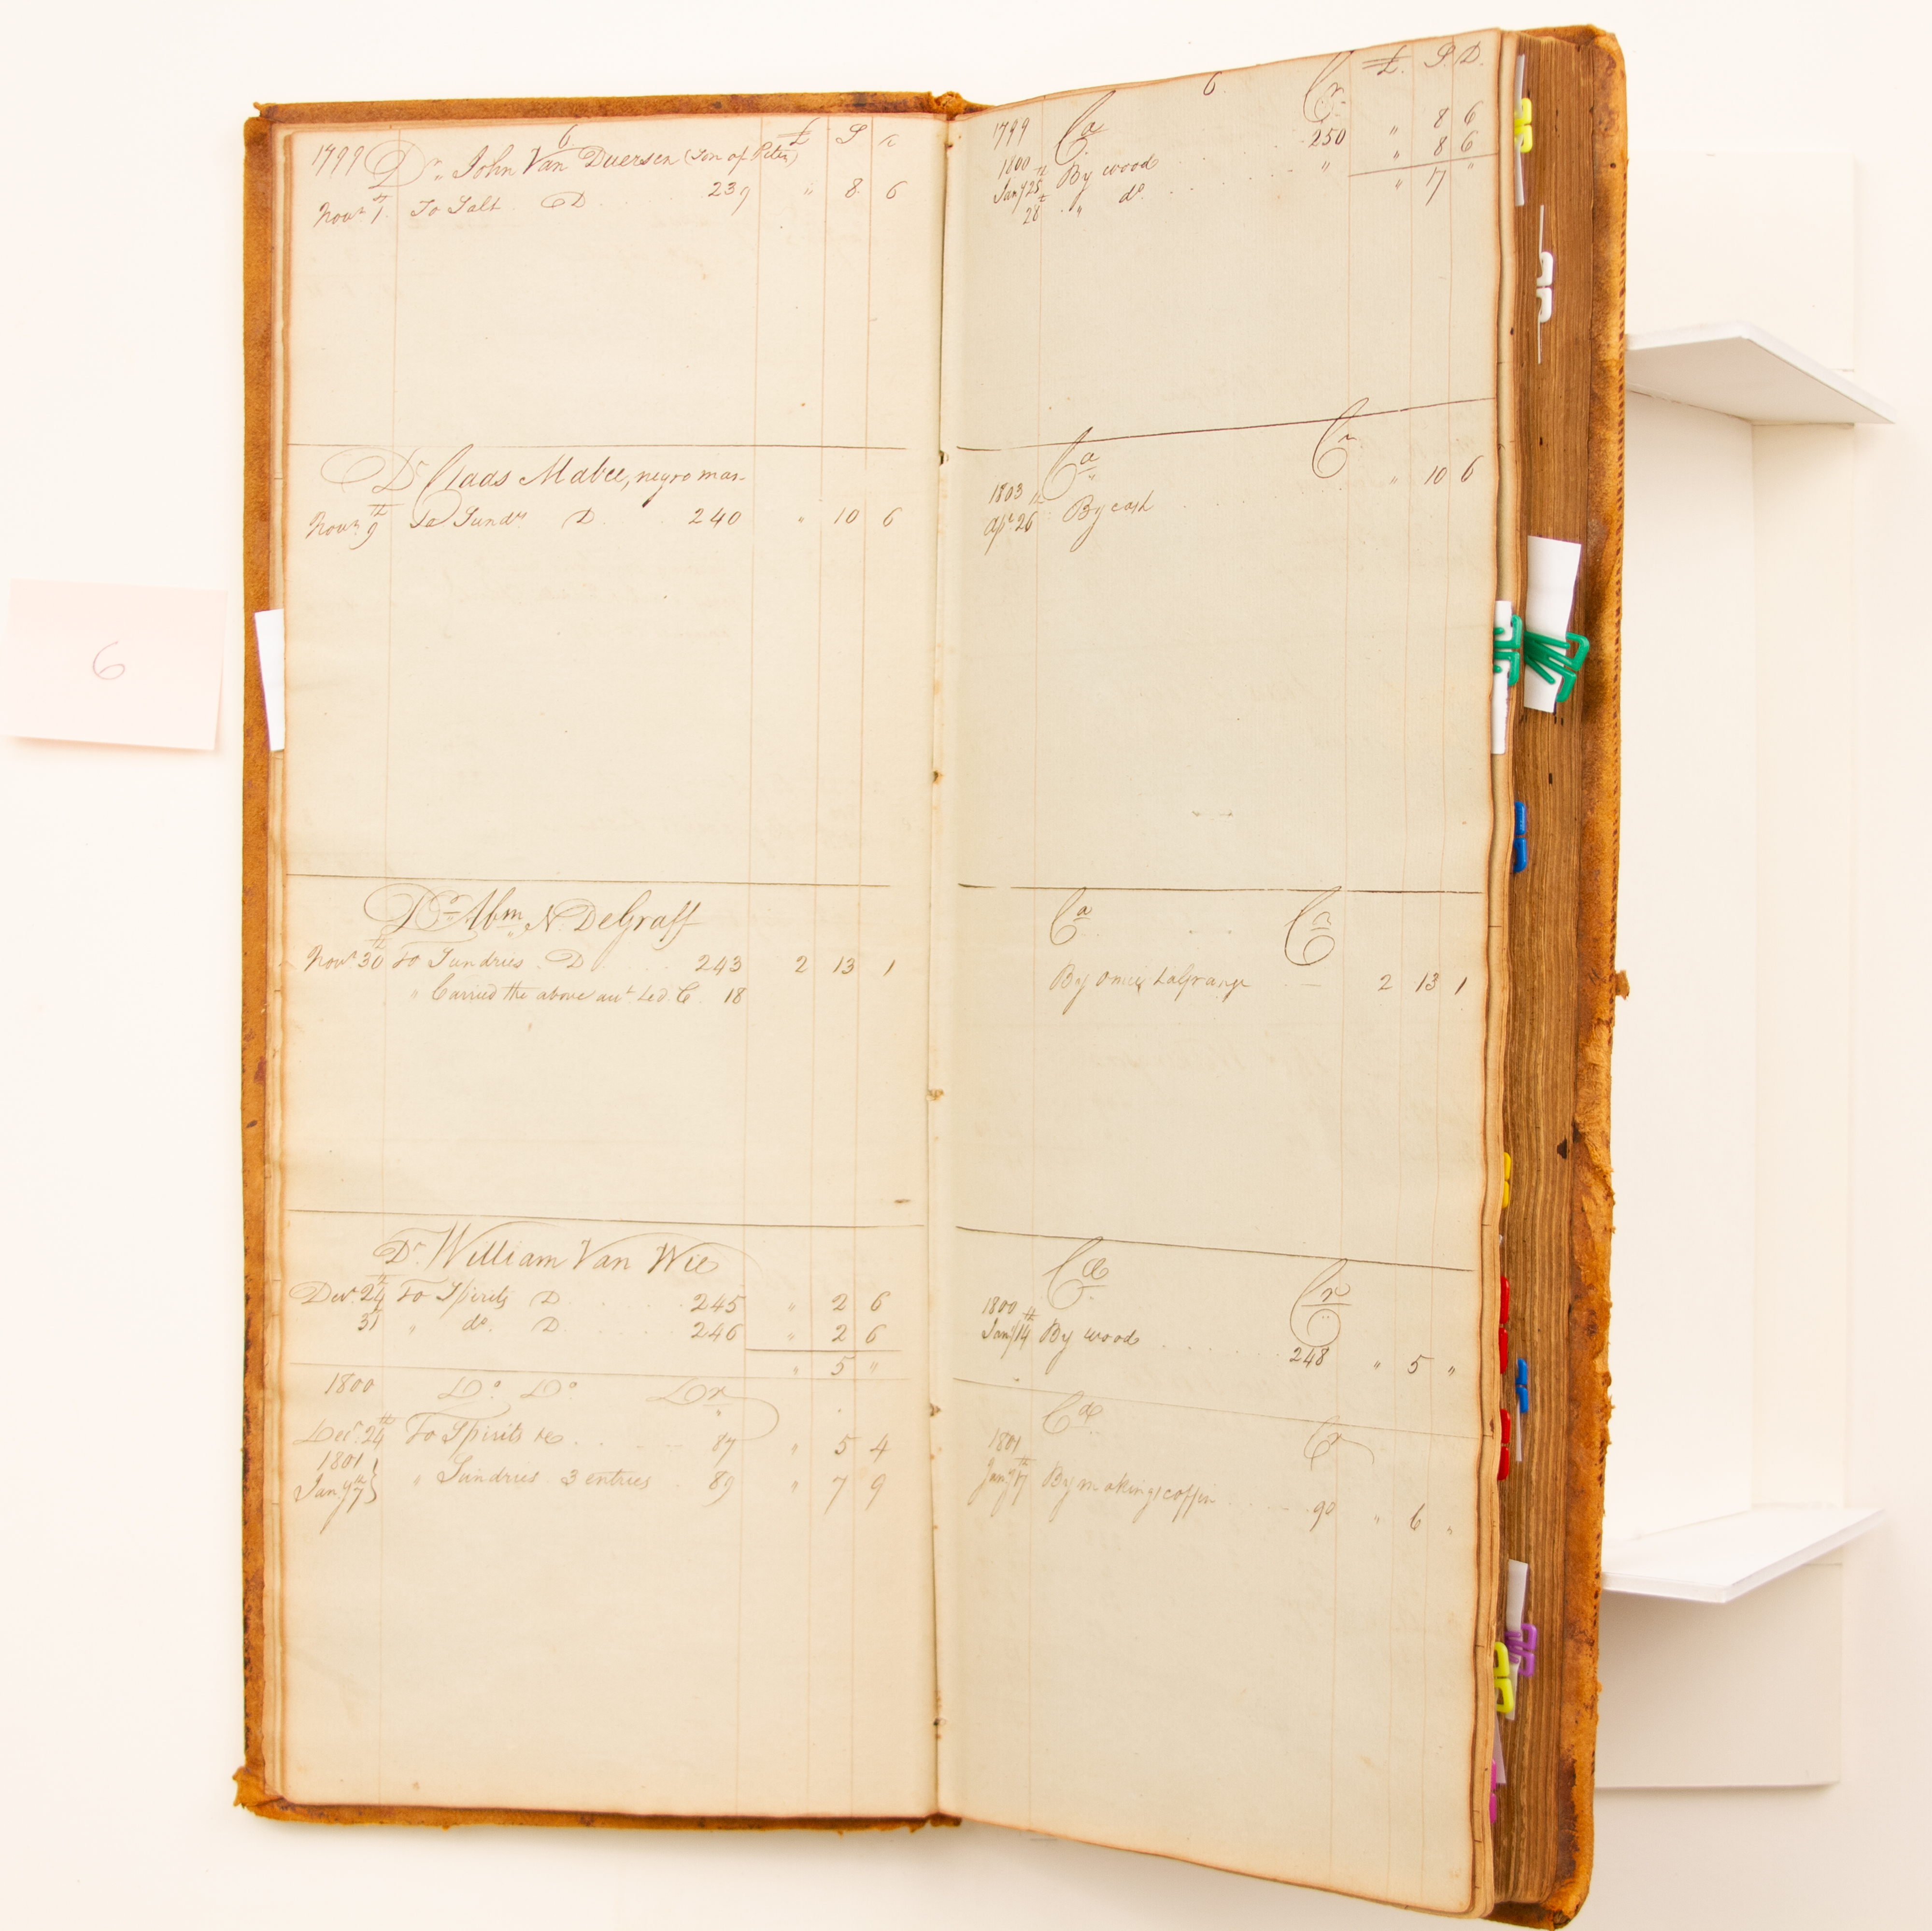 6
6 £ S
1799 Dr. John Van Duersen (Son of Peter)
Novr 1 To Salt D 239 " 8 6
Dr Claas Mabee, negro man
Novr 9th To Sundrs D 240 " 10 6
Dr Abm N DeGraff
Novr 30th To Sundries D 243 2 13 1
" Carried the above aut Led. C 18
Dr William Van Wie
Decr 24th To Spirits D 245 " 2 6
31 " do D 246 " 2 6
" 5 "
1800 Do Do Dr
Decr 24th To Spirits &c 87 " 5 4
1801
Jany 7th } " Sundries 3 entries 89 " 7 9
6 £ S D
1799 Ca Cr
1800
Jany 25th By wood 250 " 8 6
28th " do " " 8 6
" 17 "
Ca Cr
1803
Apr 26th By cash " 10 6
Ca Cr
By Omey LaGrange 2 13 1
Ca Cr
1800
Jany 14th By wood 248 " 5 "
Ca Cr
1801
Jany 17th By making coffin 90 " 6 "